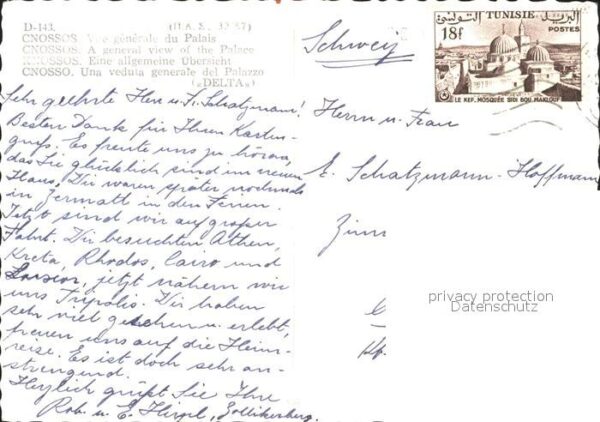 D-143. (Π.Δ.Σ. 32/57)
CNOSSOS. Vue générale du Palais
CNOSSOS. A general view of the Palace
KNOSSOS. Eine allgemeine Übersicht
CNOSSO. Una veduta generale del Palazzo
(«DELTA»)
TUNISIE
18f
POSTES
LE KEF, MOSQUÉE SIDI BOU MAKLOUF
Schweiz
Sehr geehrte Herr u. Fr. Schatzmann!
Besten Dank für Ihren Karten-
gruss. Es freute uns zu hören,
dass Sie glücklich sind im neuen
Haus. Wir waren später nochmals
in Zermatt in den Ferien.
Jetzt sind wir auf grosser
Fahrt. Wir besuchten Athen,
Kreta, Rhodos, Cairo und
jetzt nähern wir
uns Tripolis. Wir haben
sehr viel gesehen u. erlebt,
freuen uns auf die Heim-
reise. Es ist doch sehr an-
strengend.
Herzlich grüsst Sie Ihre
Rob. u. E. Zollikerberg.
Herrn u. Frau
E. Schatzmann-Hoffmann
privacy protection
Datenschutz